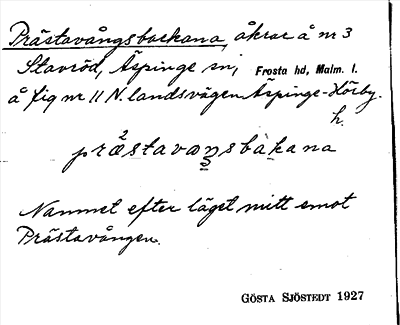 Prästavångsbackana, åkrar å nr 3
Stavröd, Äspinge sn, Frosta hd, Malm. l.
å fig nr 11 N. landsvägen Äspinge-Hörby.
h.
prästavaŋsbakana
Namnet efter läget mitt emot
Prästavången.
GÖSTA SJÖSTEDT 1927